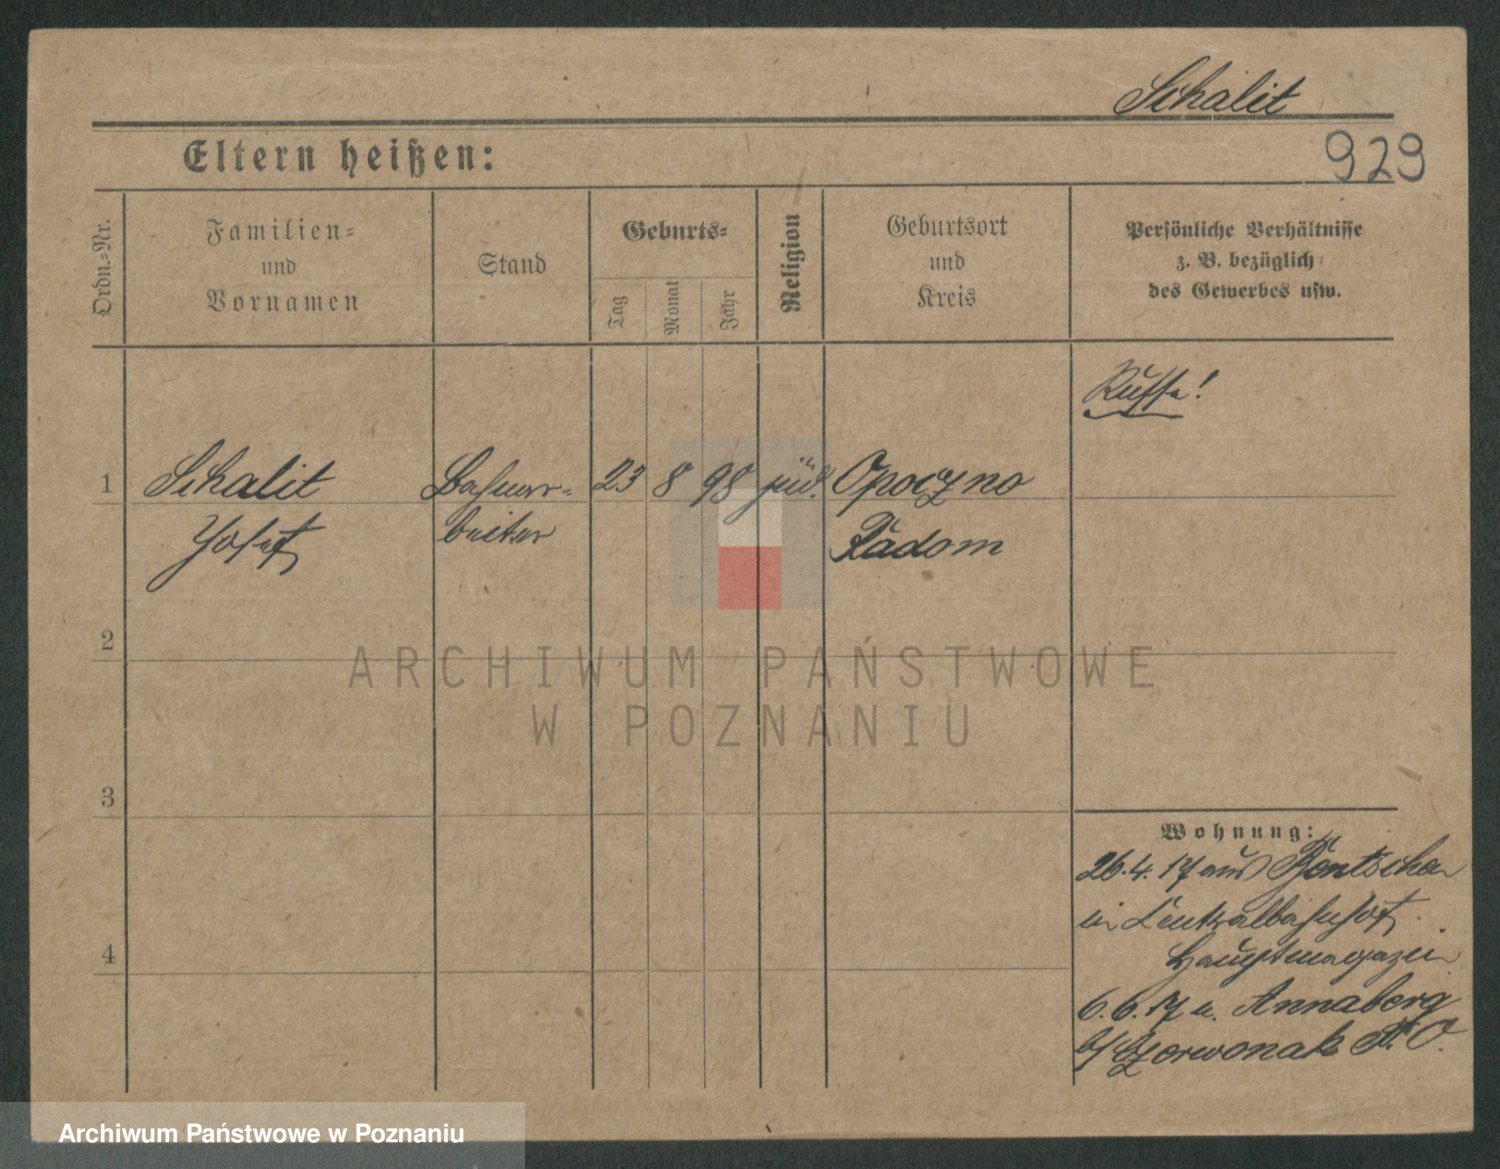 Schalit
Eltern heißen:
929
Ordn.-Nr.
Familien-
und
Vornamen
Stand
Geburts-
Tag
Monat
Jahr
Religion
Geburtsort
und
Kreis
Persönliche Verhältnisse
z. B. bezüglich
des Gewerbes usw.
Russe!
1 Schalit Bahnar- 23 8 98 jüd. Opoczno
Josef beiter Radom
2
3
4
Wohnung:
26.4.17 aus Bentschen
in Centralbahnhof
Hauptmagazin
6.6.17 n. Annaberg
b/ Czerwonak P. O.
ARCHIWUM PAŃSTWOWE
W POZNANIU
Archiwum Państwowe w Poznaniu